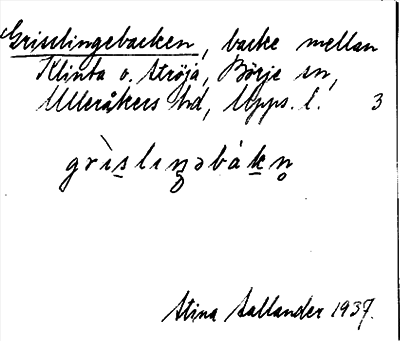 Grisslingebacken, backe mellan
Klinta o. Ströja, Börje sn,
Ulleråkers hd, Upps. l. 3
grìslıŋəbákn̥
Stina Sallander 1937.